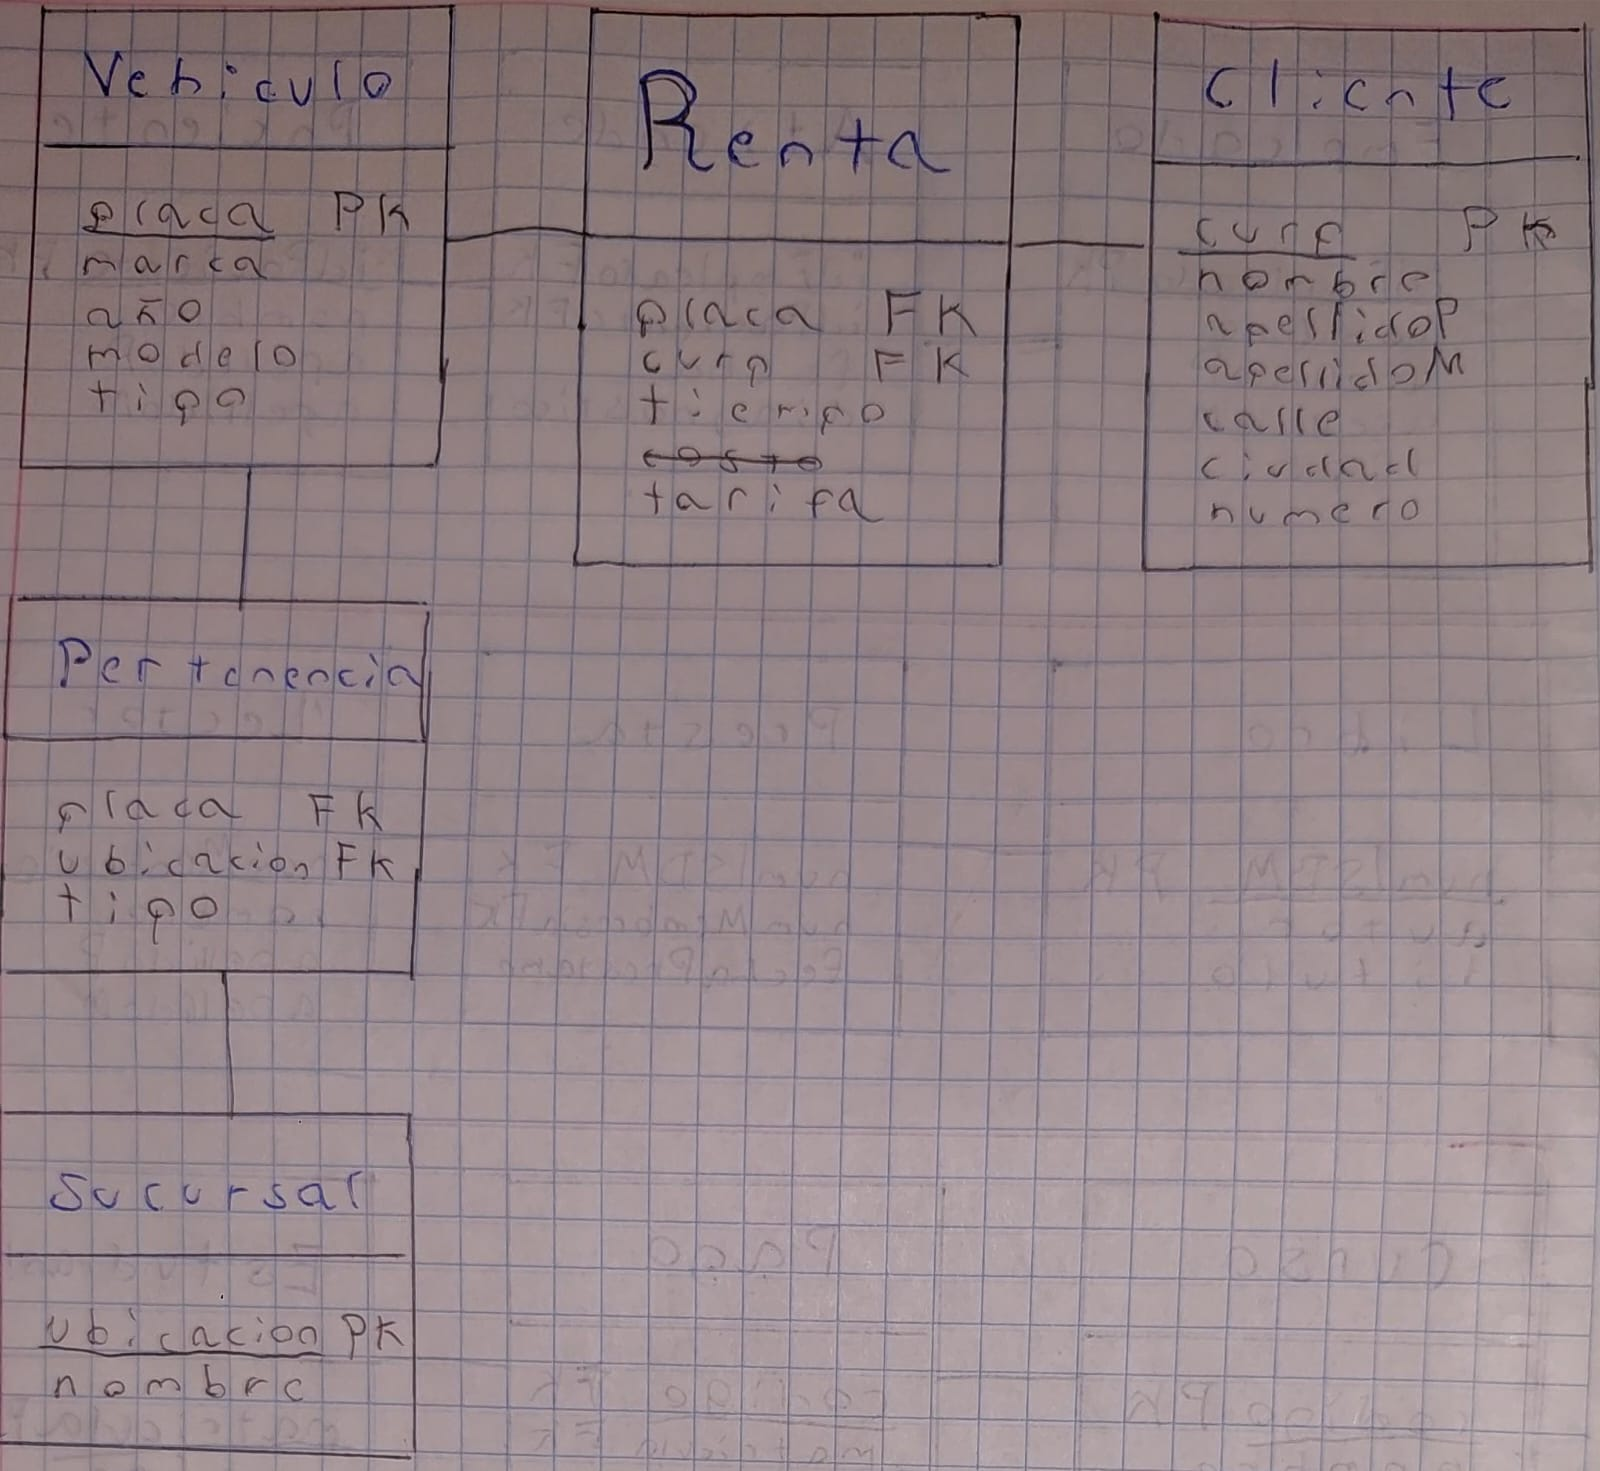 Vehiculo
placa PK
marca
año
modelo
tipo
Renta
placa FK
curp FK
tiempo
costo
tarifa
Cliente
curp PK
nombre
apellidoP
apellidoM
calle
ciudad
numero
Pertenencia
placa FK
ubicacion FK
tipo
Sucursal
ubicacion PK
nombre